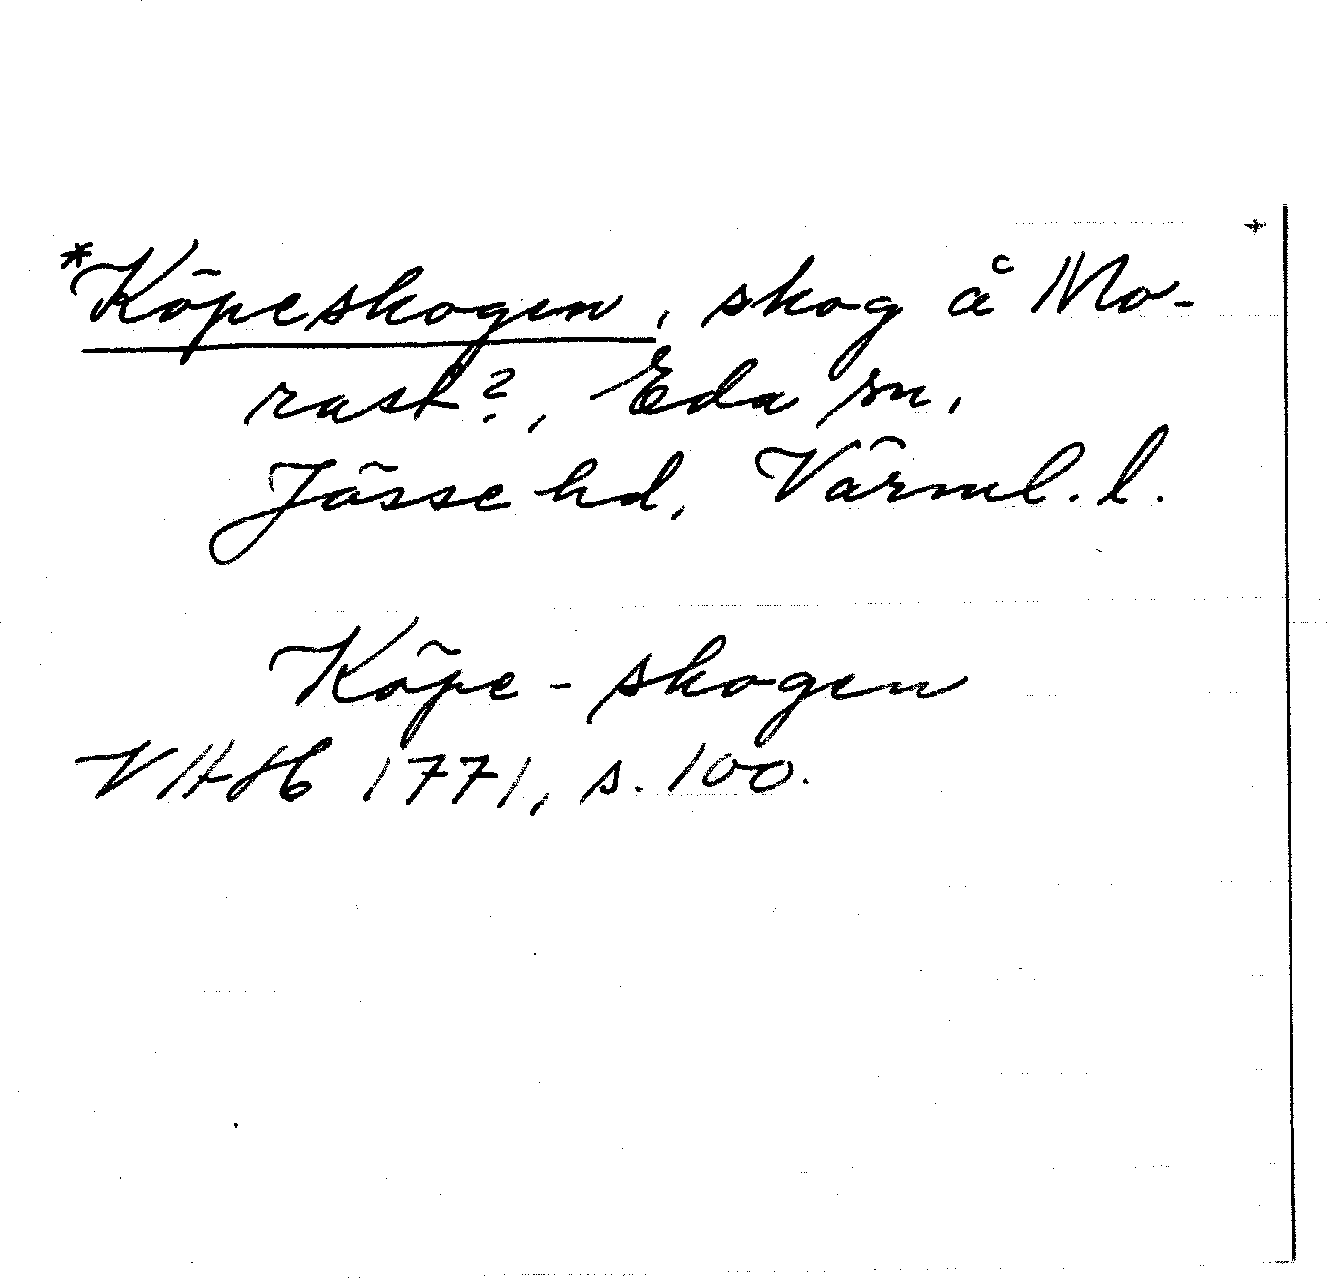 *Köpeskogen, skog å Mo-
rast?, Eda sn,
Jösse hd, Värml. l.
Köpe - skogen
VHH 1771, s. 100.